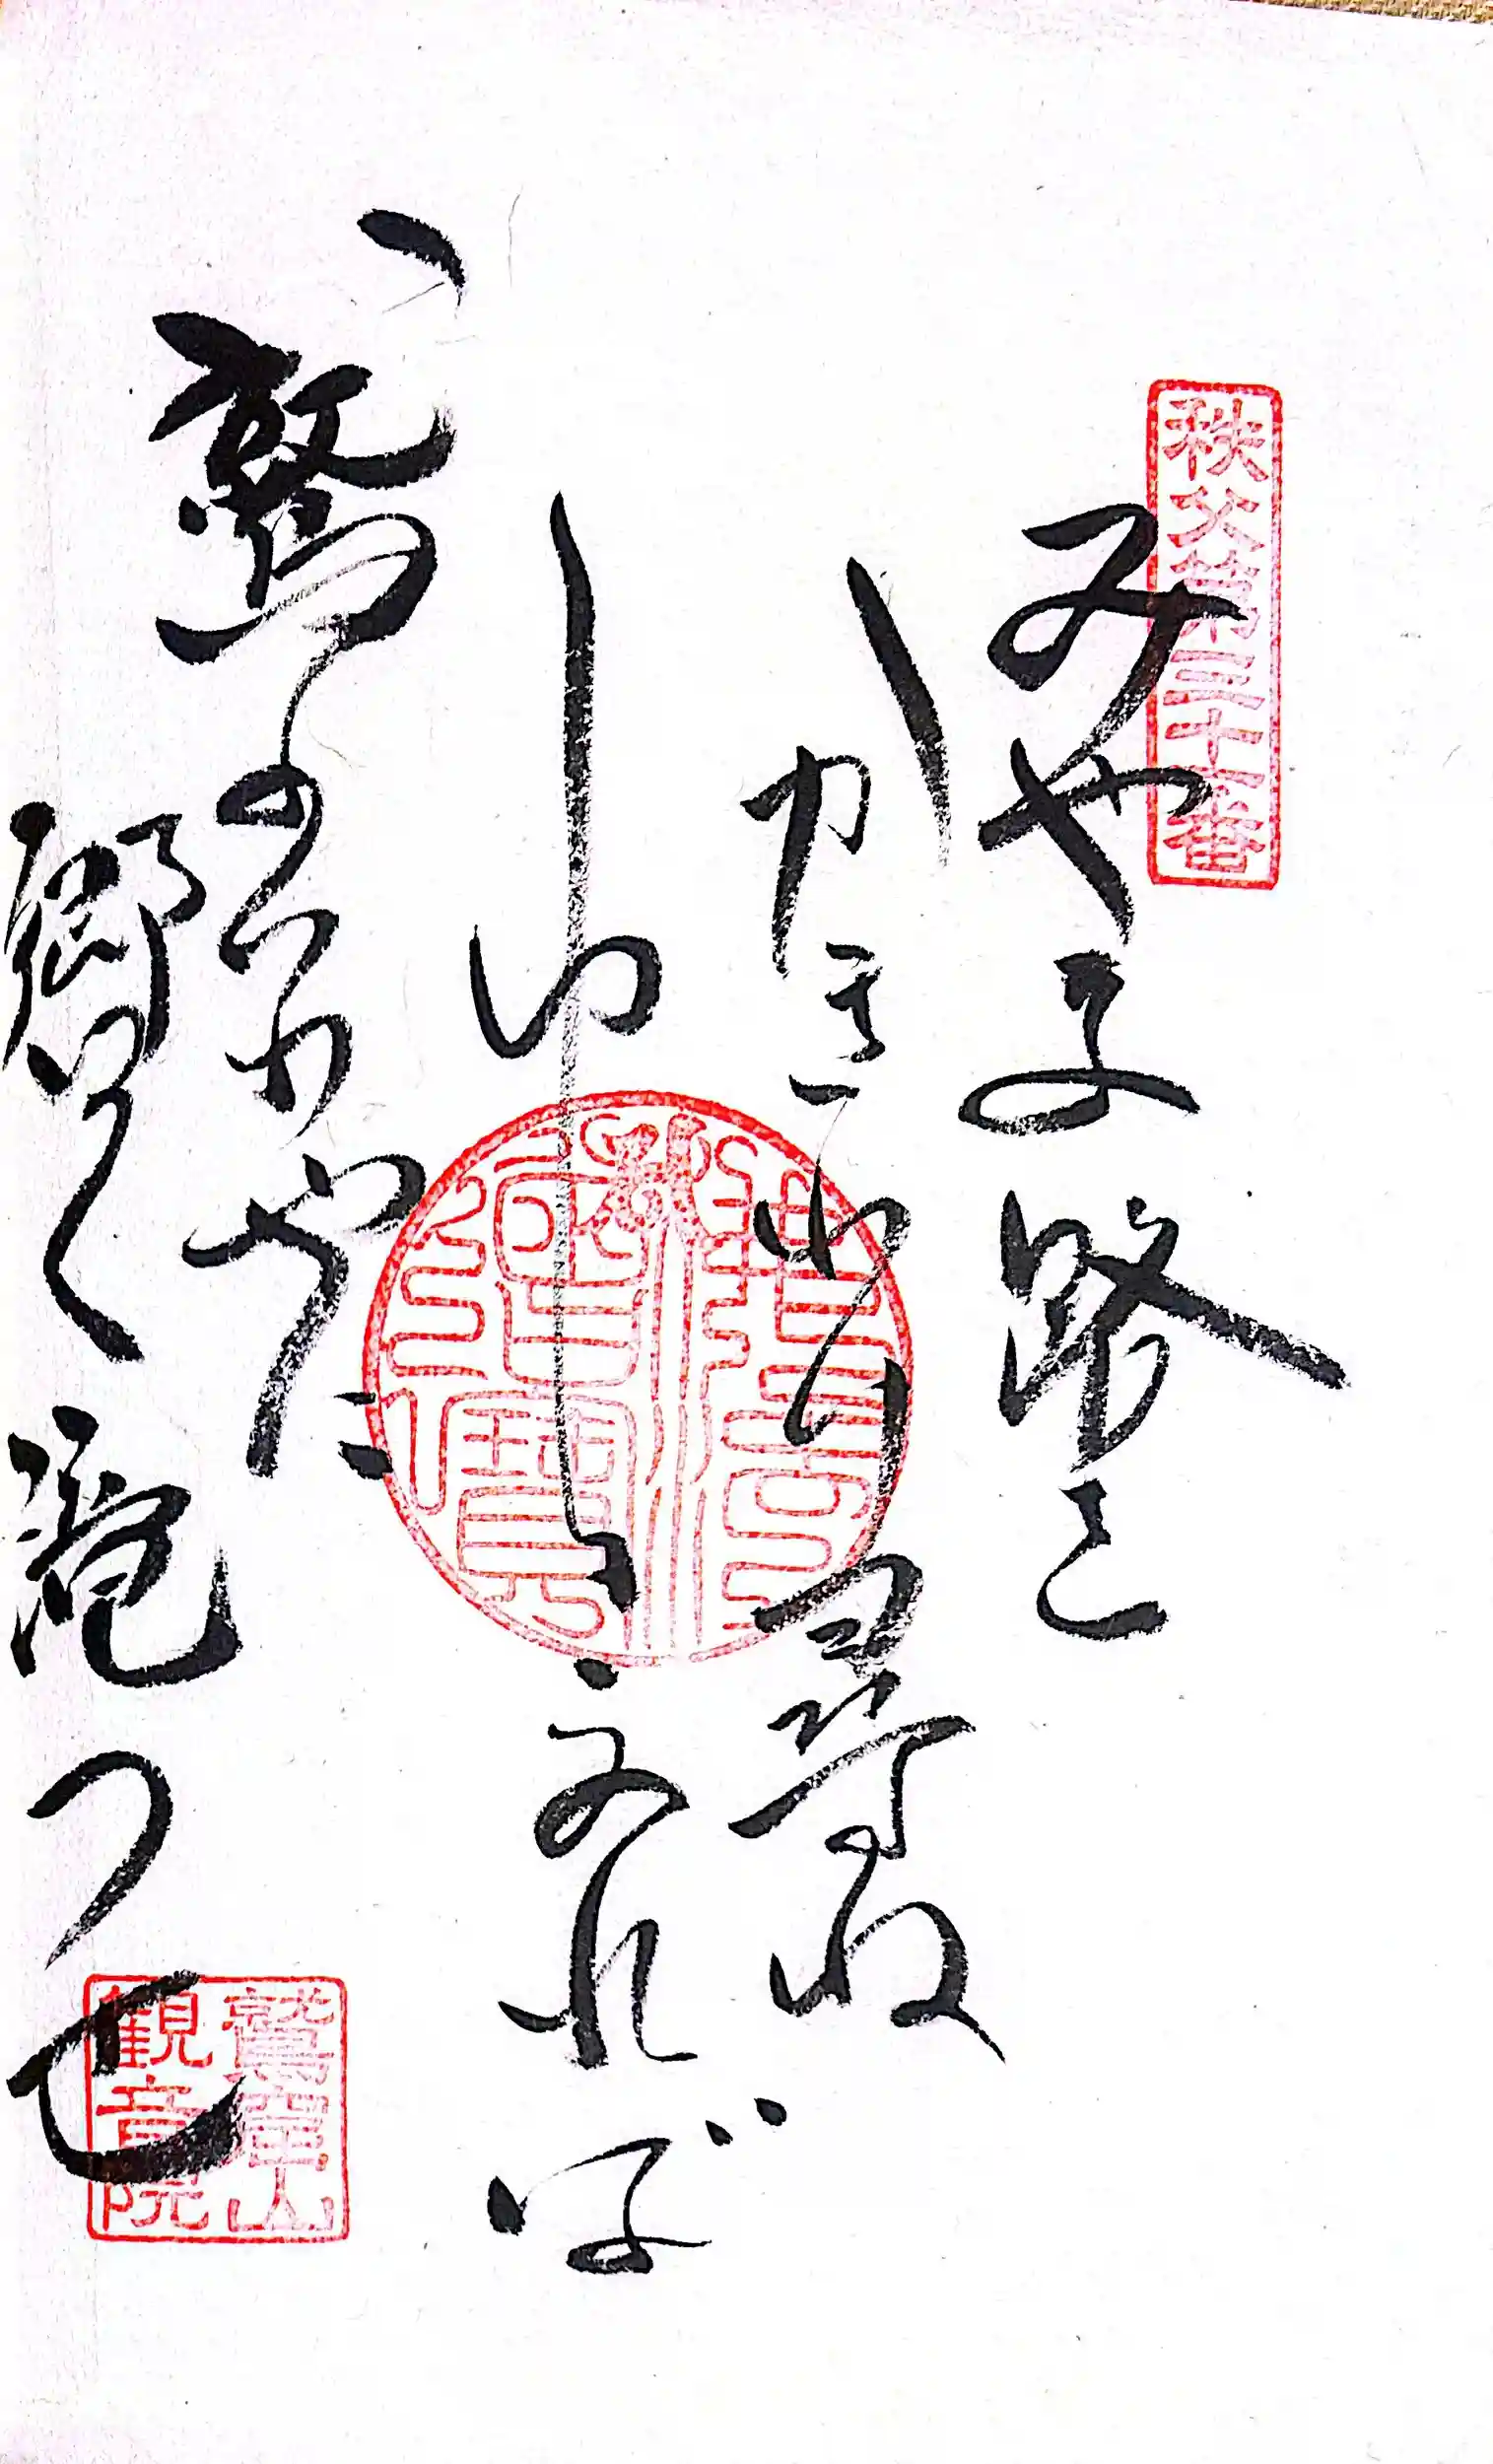 秩父第三十一番
みやま路を
かきわけ尋ね
ゆきみれば
鷲のいわやに
響く滝つせ
鷲窟山
観音院